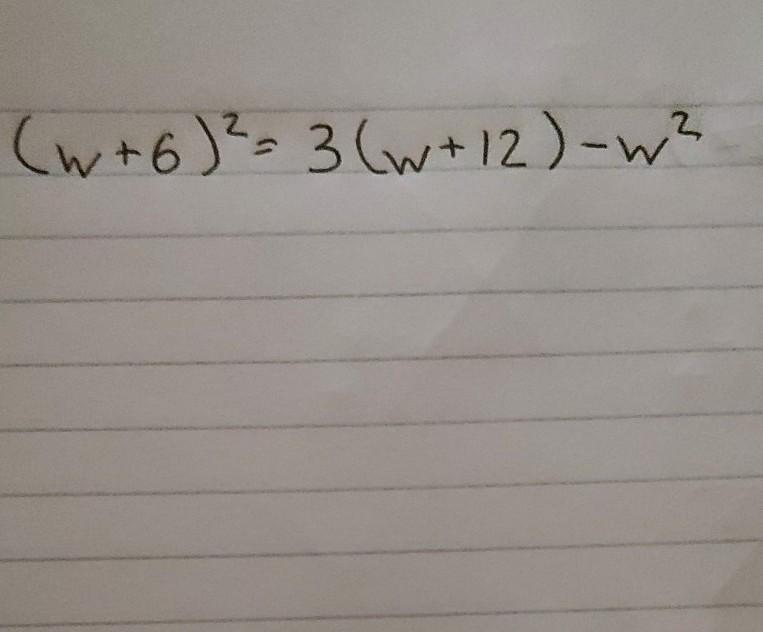 (w+6)²= 3(w+12)-w²